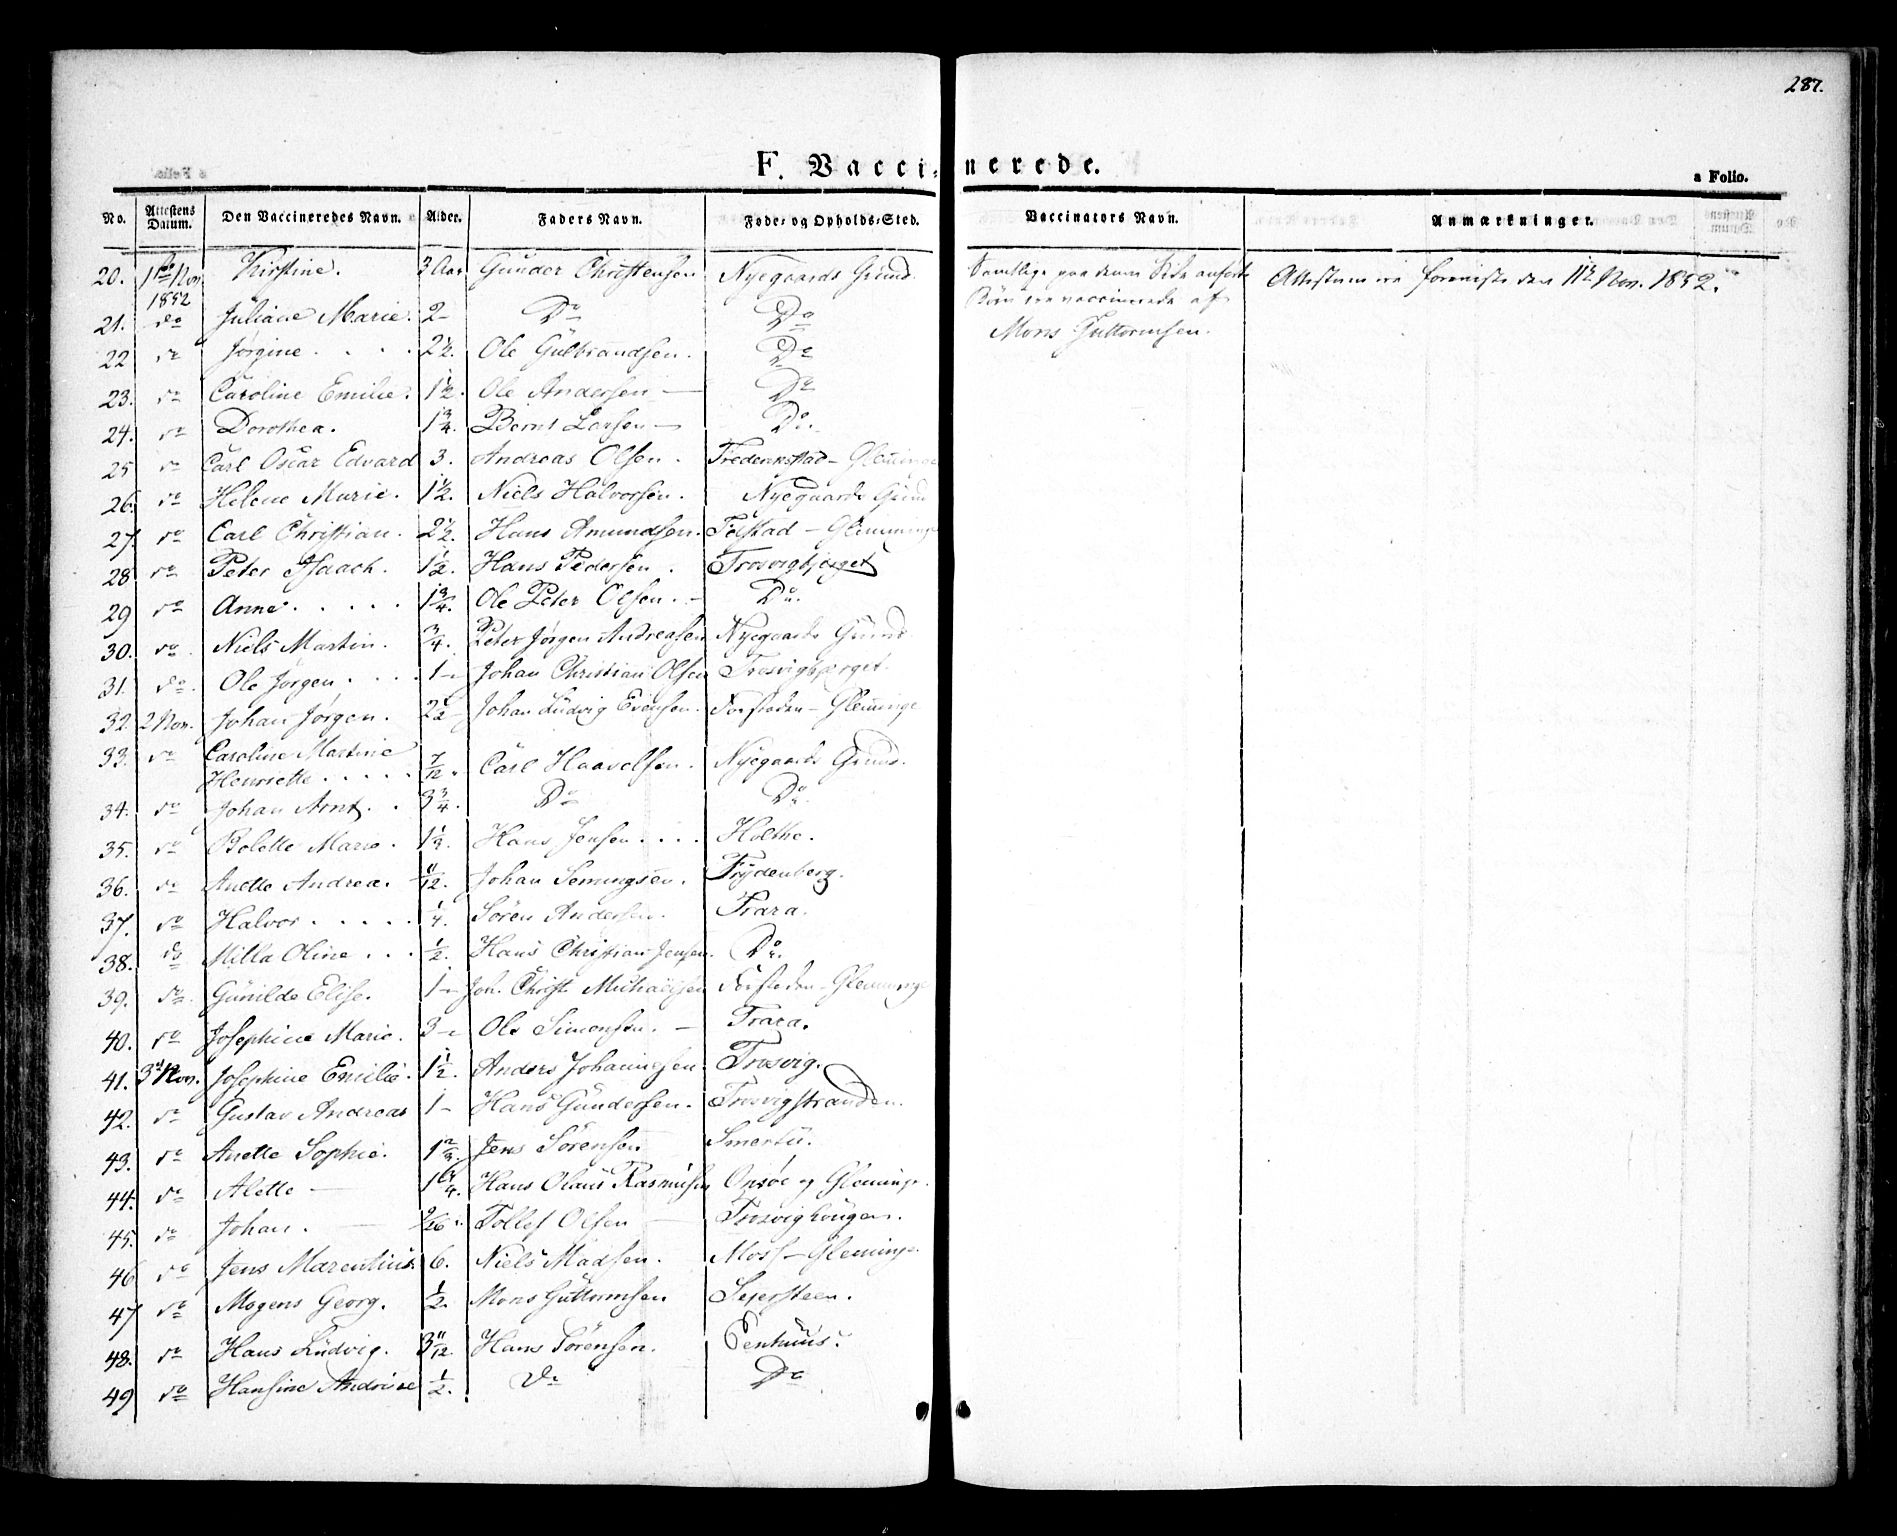 287.
F. Vaccinerede.
a Folio.
No. Attestens Datum. Den Vaccineredes Navn. Alder. Faders Navn. Føde- og Opholds-Sted. Vaccinators Navn. Anmærkninger.
20. 1ste Nov 1852 Kirstine. 3 Aar Gunder Christensen Nyegaards Grund. Samtlige paa denne Side anførte Attesterne ere foreviste den 11te Nov. 1852.
Børn ere vaccinerede af
21. do Juliane Marie. 2 - Do Do Mons Guttormsen.
22 do Jørgine . . . . 2 1/2. Ole Gulbrandsen. Do
23. do Caroline Emilie. 1 1/2. Ole Andersen — Do
24. do Dorothea. 1 3/4. Bernt Larsen — Do.
25 do Carl Oscar Edvard 3. Andreas Olsen. Frederikstad - Glemminge
26. do Helene Marie. 1 1/2. Niels Halvorsen. Nyegaards Grund
27. do Carl Christian. 2 1/2. Hans Amundsen. - Glemminge
28 do Peter Isaach. 1 1/2. Hans Pedersen. Trosvigbjerget
29 do Anne . . . . . 1 3/4. Ole Peter Olsen. - Do.
30. do. Niels Martin. 3/4. Peter Jørgen Andreasen Nyegaards Grund
31. do. Ole Jørgen . . . . 1 - Johan Christian Olsen Trosvigbjerget.
32. 2 Nov. Johan Jørgen. 2 1/2 - Johan Ludvig Evensen. Forstaden - Glemminge
33. do Caroline Martine
Henriette . . . . . 7/12. Carl Haavelsen. Nyegaards Grund.
34. do Johan Arnt. . 3 3/4. Do Do.
35. do Bolette Marie. 1 1/3. Hans Jensen . . . . Holthe.
36. do Anette Andrea. 11/12. Johan Semingsen. Frydenberg.
37. do Halvor . . . . . 1/4. Søren Andersen. Trara.
38. do Milla Oline . . . 1/2. Hans Christian Jensen. Do.
39. do. Gunilde Elise. 1 - Joh. Christ. Michaelsen Forstaden - Glemminge
40. do Josephine Marie. 3 - Ole Simensen. - Trara.
41. 3die Nov. Josephine Emilie. 1 1/2. Anders Johannesen. Trosvig.
42. do Gustav Andreas 1 - Hans Gundersen. Trosvigstranden.
43. do Anette Sophie. 1 2/3. Jens Sørensen Smertu.
44. do Alette — 1 3/4. Hans Olaus Rasmusen Onsøe og Glemminge.
45. do Johan. — Tollef Olsen — Trosvighougen.
46 do Jens Marentius. 6. Niels Madsen. Moss - Glemminge
47 do Mogens Georg. 1/2. Mons Guttormsen Sejersteen.
48. do Hans Ludvig. 3 11/12. Hans Sørensen.
49 do Hansine Andrine 1/2. do Do